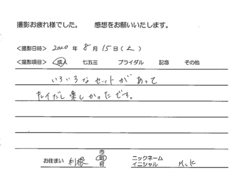 撮影お疲れ様でした。 感想をお願いいたします。
<撮影日時> 2020年 8月 15日(土)
<撮影項目> 成人 七五三 ブライダル 記念 その他
いろいろなセットがあって
楽しかったです。
お住まい 市 町 ニックネーム イニシャル M.K